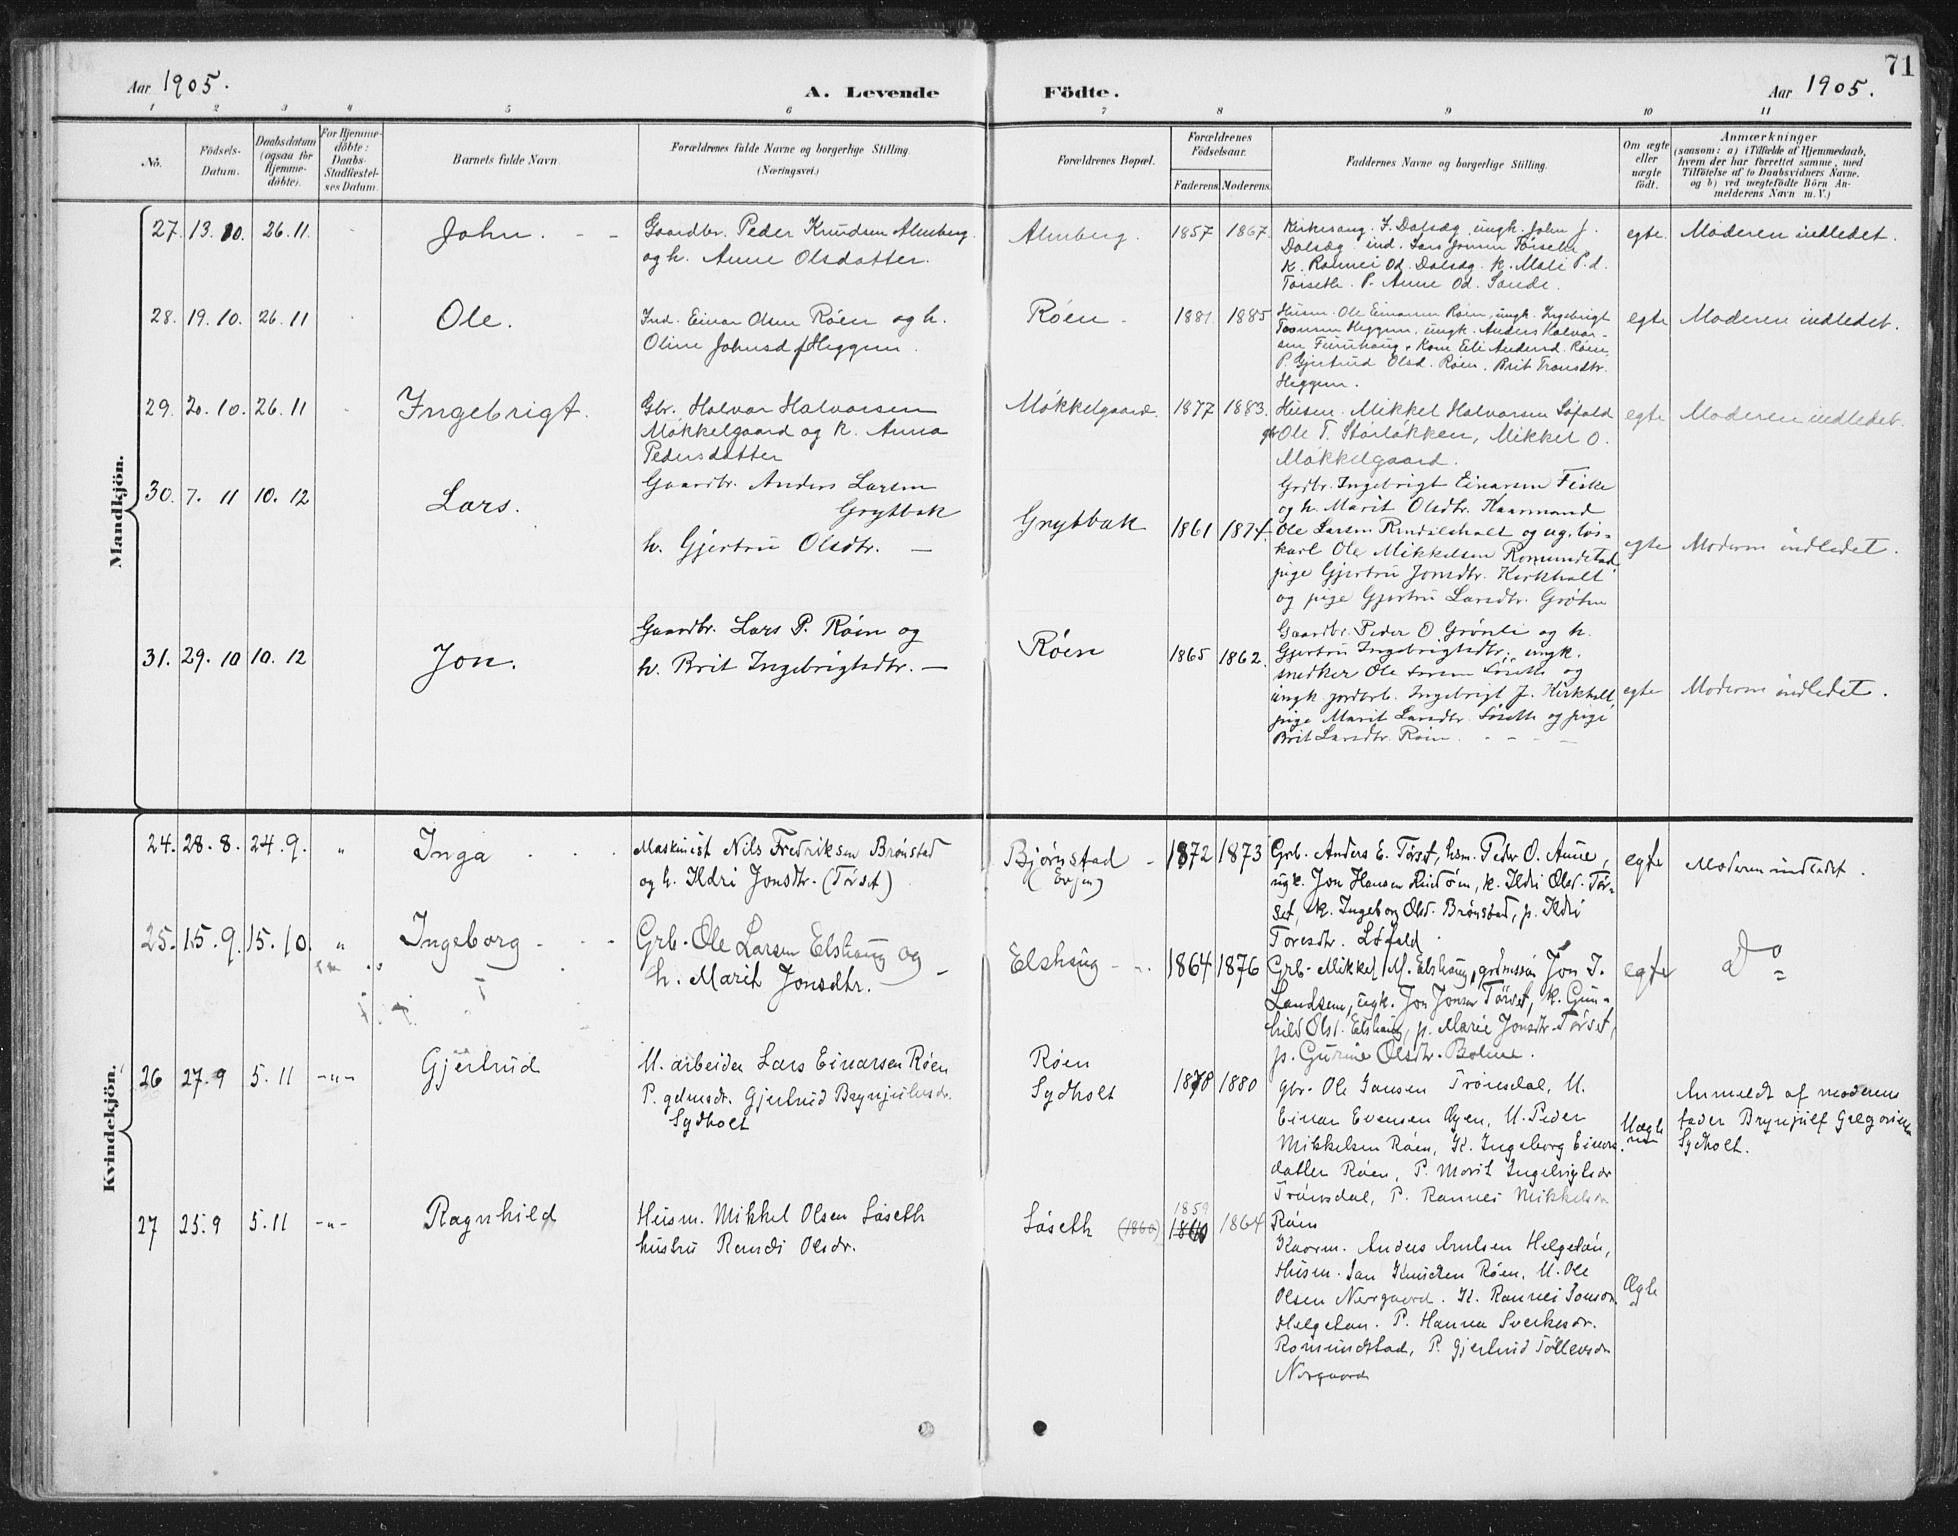 71
Aar 1905.
A. Levende Födte.
Aar 1905.
1 2 3 4 5 6 7 8 9 10 11
No.
Födsels-
Datum.
Daabsdatum
(ogsaa for
Hjemme-
döbte).
For Hjemme-
döbte:
Daabs-
Stadfæstel-
ses Datum.
Barnets fulde Navn
Forældrenes fulde Navne og borgerlige Stilling
(Næringsvei.)
Forældrenes Bopæl.
Forældrenes
Födselsaar.
Faderens. Moderens.
Faddernes Navne og borgerlige Stilling.
Om ægte
eller
uægte
födt.
Anmærkninger
(saasom: a) i Tilfælde af Hjemmedaab,
hvem der har forrettet samme, med
Tilföielse af to Daabsvidners Navne.
og b) ved uægtefödte Börn An-
melderens Navn m. V.)
Mandkjön.
27. 13. 10. 26. 11.
John.
Gaardbr. Peder Knudsen Almberg
og h. Anne Olsdatter.
Almberg.
1857 1867.
Kirkesang. J. Dalsæg, ungk. John J.
Dalsæg, ind. Lars Jonsen Törseth
K. Rannei Od. Dalsæg. k. Mali P.d.
Törseth. P. Anne Od. Sande.
egte.
Moderen indledet.
28. 19. 10. 26. 11
Ole.
Ind. Einar Olsen Röen og h.
Oline Johnsd f Heggem.
Röen
1881 1885
Husm. Ole Einarsen Röen, ungk. Ingebrigt
Heggem, ungk. Anders Halvor-
sen Furuhaug, Kone Eli Andersd. Röen,
P. Gjertrud Olsd. Röen, Brit Tronsdtr.
Heggem.
egte
Moderen indledet.
29. 20. 10. 26. 11
Ingebrigt.
Gbr. Halvor Halvorsen
Mökkelgaard og k. Anna
Pedersdatter
Mökkelgaard.
1877 1883.
Husm. Mikkel Halvorsen Löfald
gbr Ole T. Störlökken, Mikkel O.
Mökkelgaard.
egte
Moderen indledet.
30. 7. 11 10. 12
Lars.
Gaardbr. Anders Larsen
Grytbak
h. Gjertru Olsdtr. —
Grytbak
1861 1874
Grdbr. Ingebrigt Einarsen Fiske
og h. Marit Olsdtr. Kaarmand
Ole Larsen Rindalsholt og ug. lös-
karl Ole Mikkelsen Romundstad,
pige Gjertru Jonsdtr. Kirkholt
og pige Gjertru Larsdtr. Gröten
egte
Moderen indledet.
31. 29. 10 10. 12
Jon.
Gaardbr. Lars P. Röen og
h. Brit Ingebrigtsdtr. —
Röen
1865 1862.
Gaardbr. Peder O Grönli og h.
Gjertru Ingebrigtsdtr. ungk.
snedker Ole Larsen Löseth og
ungk. jordbrb. Ingebrigt J. Kirkholt,
pige Marit Larsdtr. Löseth og pige
Brit Larsdtr. Röen.
egte
Moderen indledet.
Kvindekjön.
24. 28. 8. 24. 9. "
Inga
Maskinist Nils Fredriksen Brönstad
og h. Ildri Jonsdtr. (Törset)
Bjørnstad
(Evjen)
1872 1873
Grb. Anders E. Törset, hsm. Peder O. Aune,
ugk. Jon Hansen Rindöen, k. Ildri Olsd. Tör-
set, k. Ingeborg Olsd. Brönstad, p. Ildri
Toresdtr. Löfald.
egte
Moderen indledet.
25. 15. 9. 15. 10. "
Ingeborg
Grb. Ole Larsen Elshaug og
h. Marit Jonsdtr. —
Elshaug
1864 1876
Grb. Mikkel M. Elshaug, grdmssön Jon I.
Landsem, ugk. Jon Jonsen Törset, k. Gun-
hild Olsd. Elshaug, p. Marie Jonsdtr. Törset,
p. Gurine Olsdtr. Bolme.
egte
Do
26 27. 9 5. 11 -"-
Gjertrud
U. arbeider Lars Einarsen Röen
P. gdmsdr. Gjertrud Brynjulvsdr.
Sydholt
Röen
Sydholt
1878 1880
gbr. Ole Jansen Trönsdal, U.
Einar Evensen Öyen, U. Peder
Mikkelsen Röen, K. Ingeborg Einars
datter Röen, P. Marit Ingebrigtsdr
Trönsdal, P. Rannei Mikkelsdr
Röen
Uægte
Anmeldt af moderens
fader Brynjulf Gregorisen
Sydholt.
27 25. 9 5. 11 -"-
Ragnhild
Husm. Mikkel Olsen Löseth
hustru Randi Olsdr.
Löseth (1860)
1859
1864
Kaarm. Anders Arntsen Helgetön,
Husm. Jan Knudsen Röen, U. Ole
Olsen Nergaard. K. Rannei Jonsdr
Helgetan. P. Hanna Sverkesdr.
Romundstad, P. Gjertrud Tollevsdr
Nergaard
Ægte